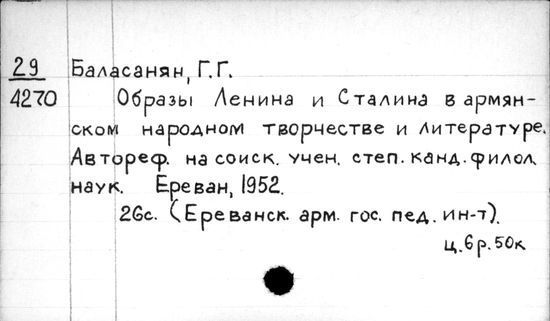 29 Баласанян, Г.Г.
4270 Образы Ленина и Сталина в армян-
ском народном творчестве и литературе.
Автореф. на соиск. учен. степ. канд. филол.
наук. Ереван, 1952.
26с. (Ереванск. арм. гос. пед. ин-т).
ц. 6р. 50к